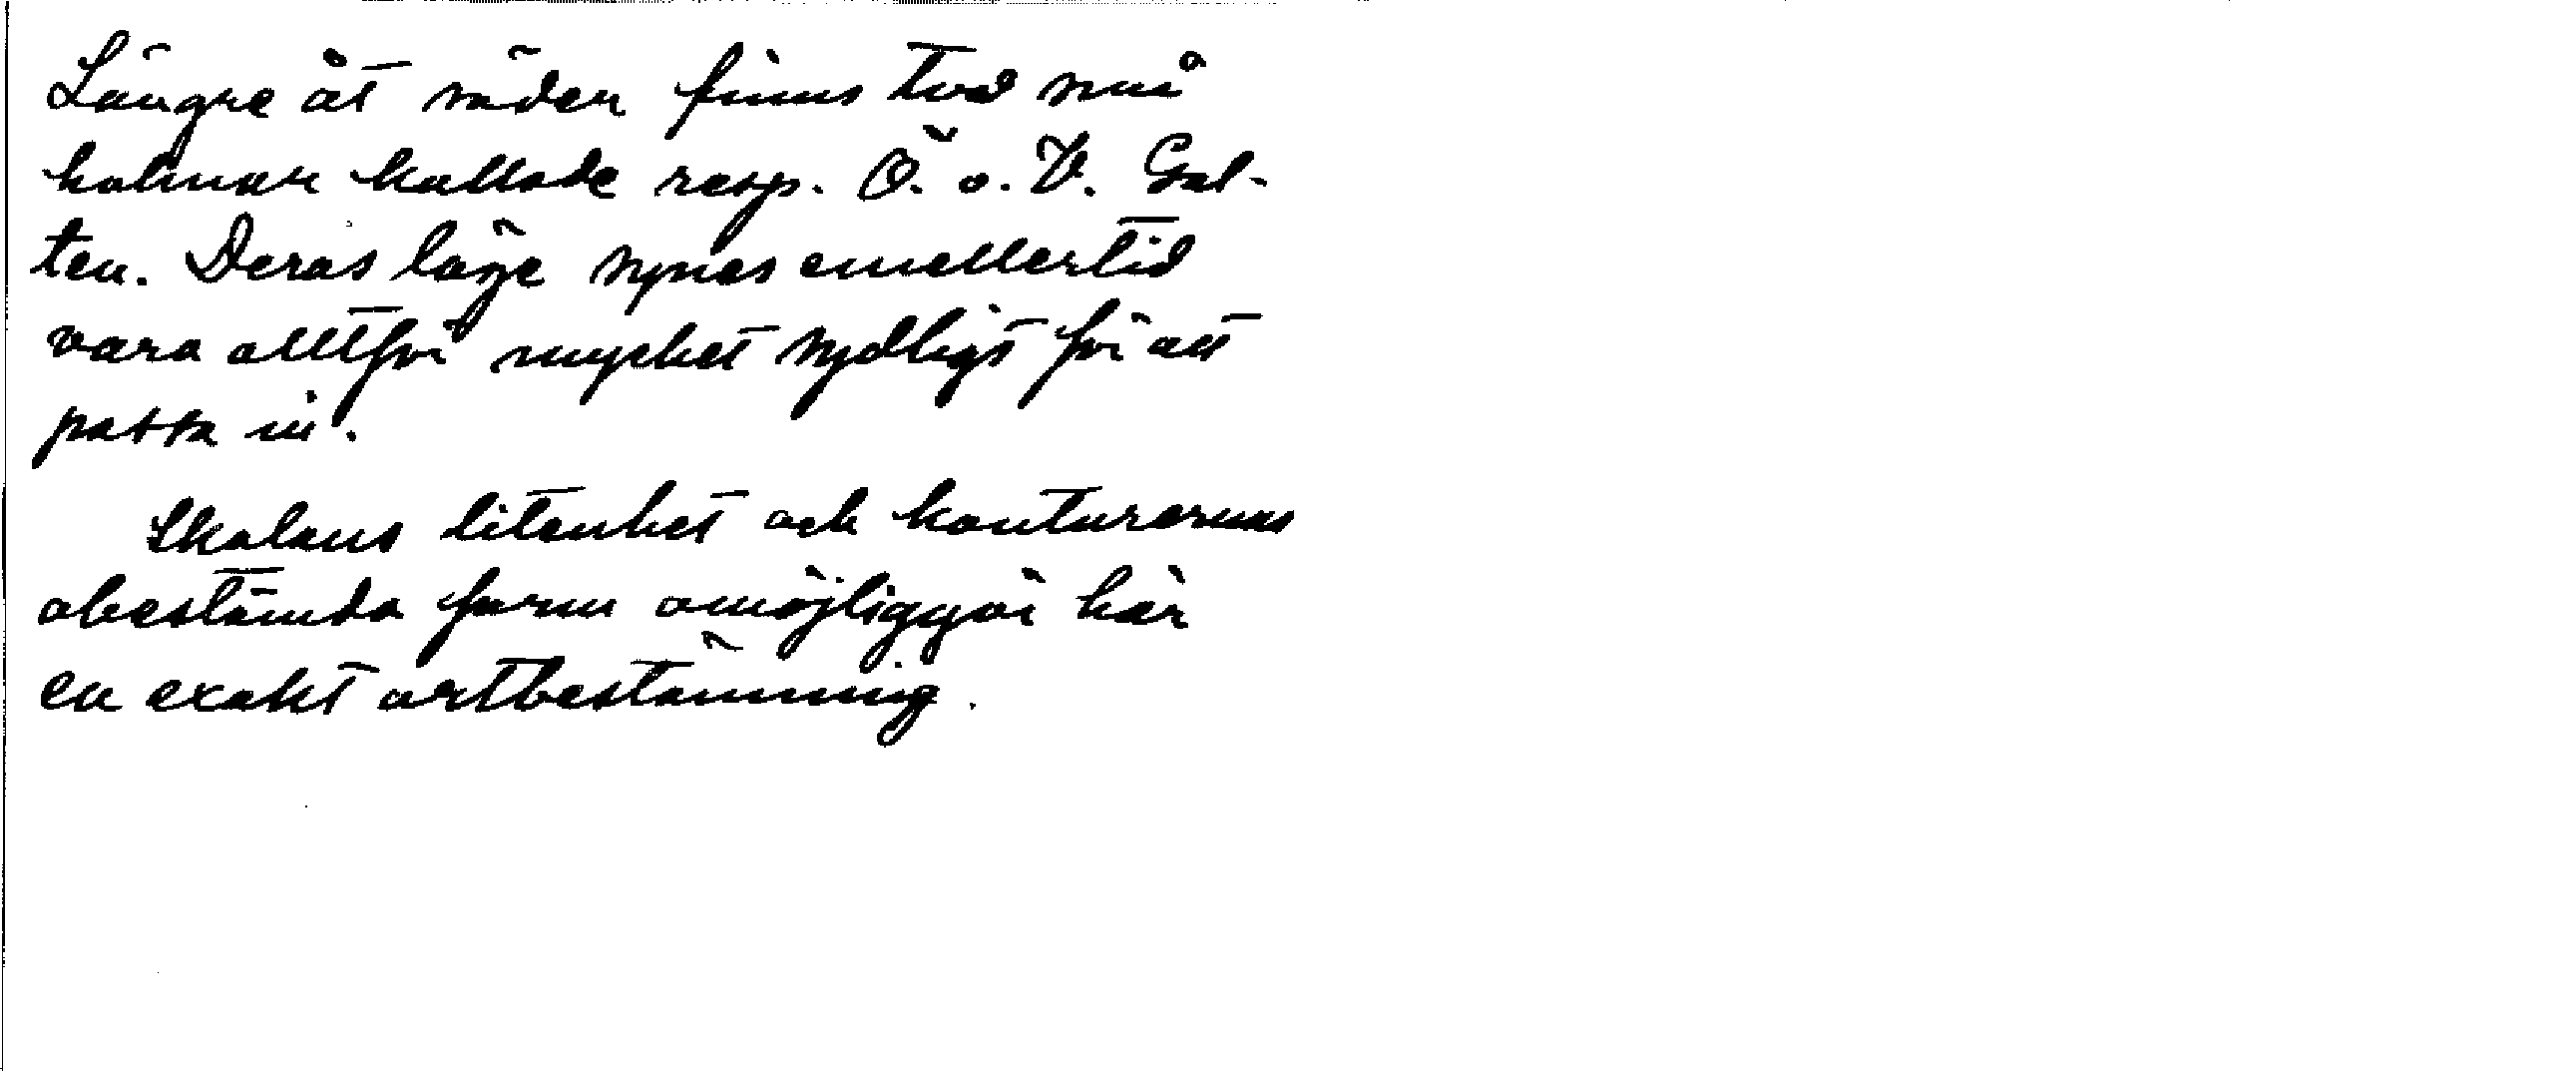 Längre åt söder finns två små
holmar kallade resp. Ö. o. V. Gal-
ten. Deras läge synes emellertid
vara alltför mycket sydligt för att
passa in.
Skalans litenhet och konturernas
obestämda form omöjliggör här
en exakt artbestämning.